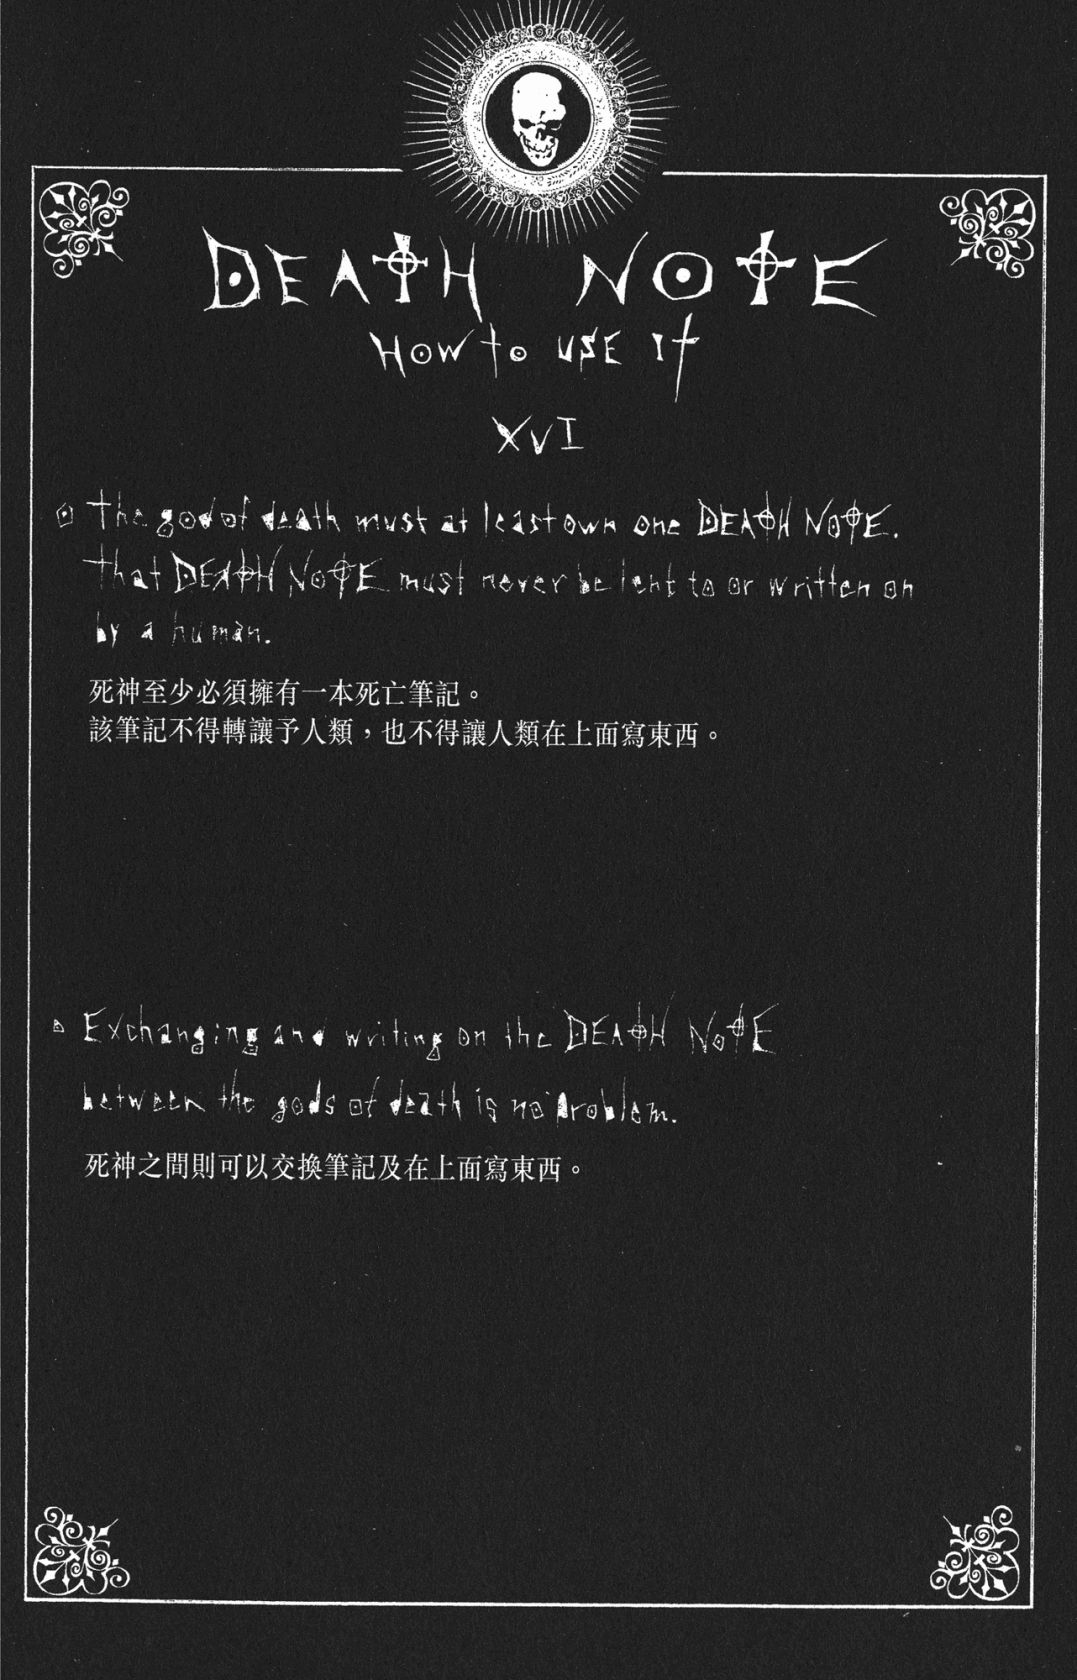 DEATH NOTE
HOW to USE It
XVI
The god of death must at least own one DEATH NOTE.
That DEATH NOTE must never be lent to or written on
by a human.
死神至少必須擁有一本死亡筆記。
該筆記不得轉讓予人類，也不得讓人類在上面寫東西。
Exchanging and writing on the DEATH NOTE
between the gods of death is no problem.
死神之間則可以交換筆記及在上面寫東西。